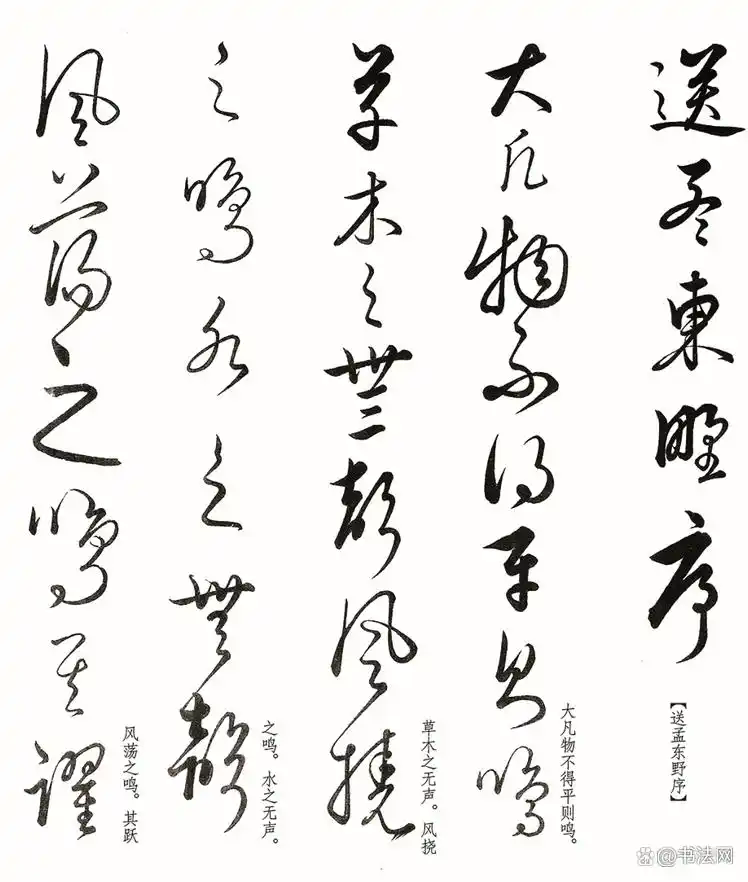 送孟東野序
【送孟东野序】
大凡物不得平則鳴
大凡物不得平则鸣。
草木之無聲風撓
草木之无声。风挠
之鳴水之無聲
之鸣。水之无声。
風蕩之鳴其躍
风荡之鸣。其跃
@书法网